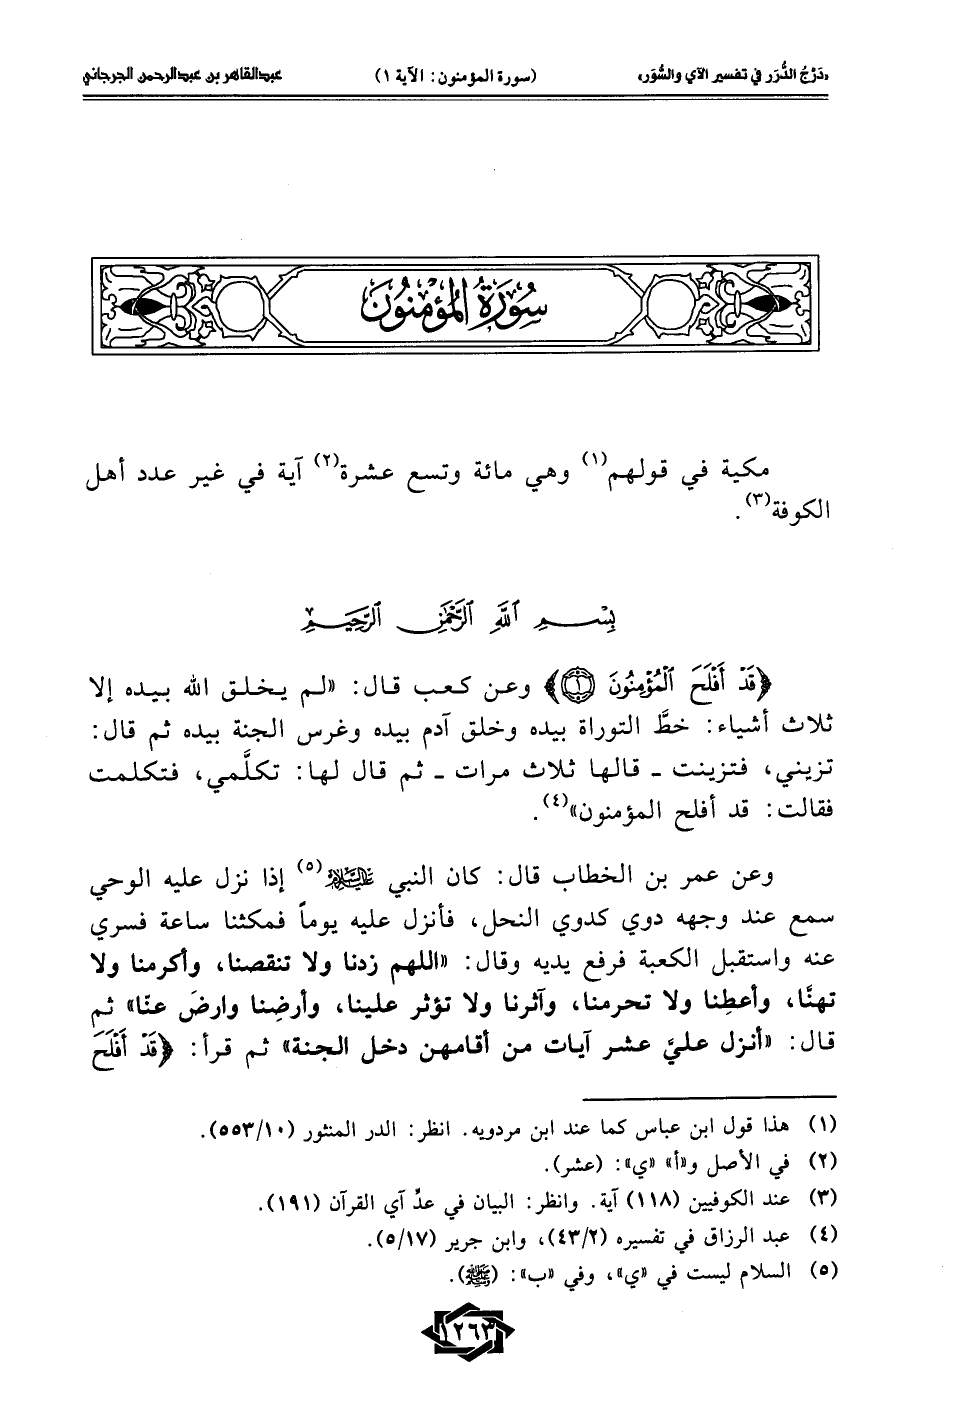 «دَرْجُ الدُّرَر في تفسير الآي والسُّوَر» (سورة المؤمنون: الآية ١) عبدالقاهر بن عبدالرحمن الجرجاني
سُورَةُ المُؤْمِنُون
مكية في قولهم(١) وهي مائة وتسع عشرة(٢) آية في غير عدد أهل
الكوفة(٣).
بِسْمِ ٱللَّهِ ٱلرَّحْمَٰنِ ٱلرَّحِيمِ
﴿قَدْ أَفْلَحَ ٱلْمُؤْمِنُونَ ١﴾ وعن كعب قال: «لم يخلق الله بيده إلا
ثلاث أشياء: خطَّ التوراة بيده وخلق آدم بيده وغرس الجنة بيده ثم قال:
تزيني، فتزينت ـ قالها ثلاث مرات ـ ثم قال لها: تكلَّمي، فتكلمت
فقالت: قد أفلح المؤمنون»(٤).
وعن عمر بن الخطاب قال: كان النبي عليه السلام(٥) إذا نزل عليه الوحي
سمع عند وجهه دوي كدوي النحل، فأنزل عليه يوماً فمكثنا ساعة فسري
عنه واستقبل الكعبة فرفع يديه وقال: «اللهم زدنا ولا تنقصنا، وأكرمنا ولا
تهنَّا، وأعطِنا ولا تحرمنا، وآثرنا ولا تؤثر علينا، وأرضِنا وارضَ عنّا» ثم
قال: «أنزل عليَّ عشر آيات من أقامهن دخل الجنة» ثم قرأ: ﴿قَدْ أَفْلَحَ
(١) هذا قول ابن عباس كما عند ابن مردويه. انظر: الدر المنثور (١٠/٥٥٣).
(٢) في الأصل و«أ» «ي»: (عشر).
(٣) عند الكوفيين (١١٨) آية. وانظر: البيان في عدِّ آي القرآن (١٩١).
(٤) عبد الرزاق في تفسيره (٢/٤٣)، وابن جرير (١٧/٥).
(٥) السلام ليست في «ي»، وفي «ب»: (ﷺ).
١٢٦٣